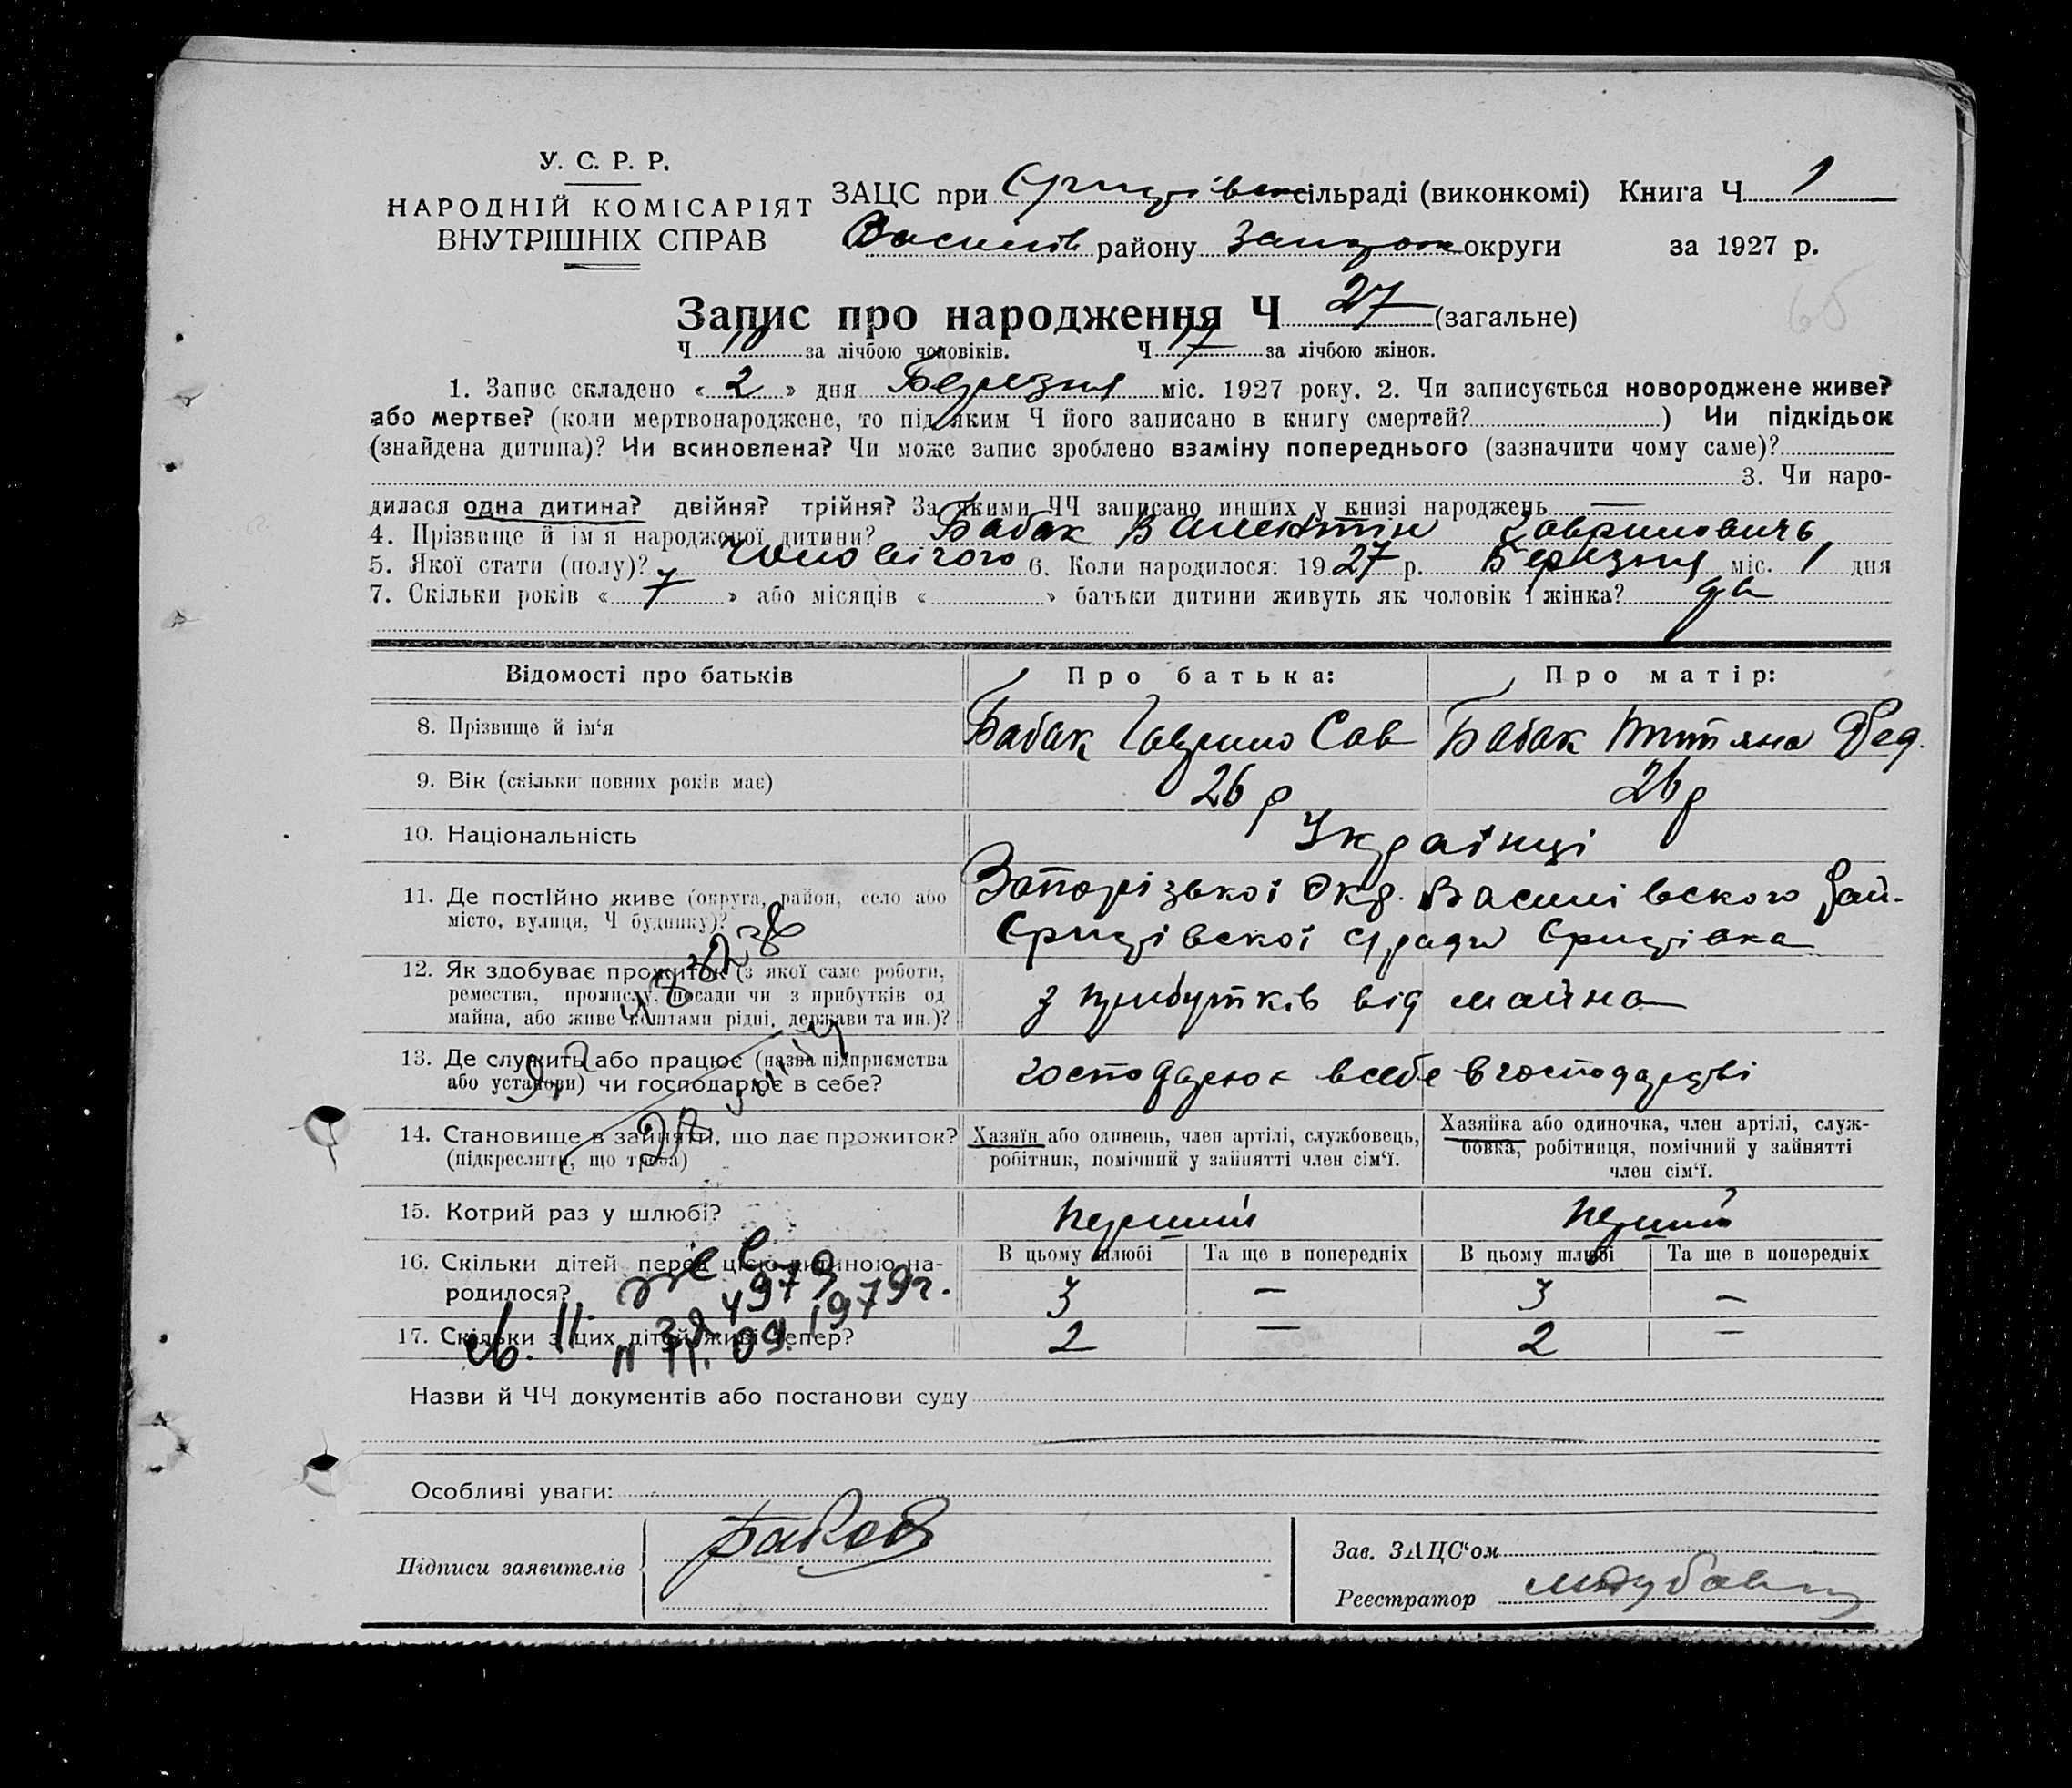 У. С. Р. Р.
НАРОДНІЙ КОМІСАРІЯТ
ВНУТРІШНІХ СПРАВ
ЗАЦС при сільраді (виконкомі) Книга Ч 1
Василів району Запорож округи за 1927 р.
Запис про народження Ч 27 (загальне)
Ч 10 за лічбою чоловіків. Ч 17 за лічбою жінок.
1. Запис складено « 2 » дня Березня міс. 1927 року. 2. Чи записується новороджене живе?
або мертве? (коли мертвонароджене, то під яким Ч його записано в книгу смертей? ) Чи підкідьок
(знайдена дитина)? Чи всиновлена? Чи може запис зроблено взаміну попереднього (зазначити чому саме)?
3. Чи наро-
дилася одна дитина? двійня? трійня? За якими ЧЧ записано инших у книзі народжень —
4. Прізвище й ім я народженої дитини? Бабак Валентин Гаврилович
5. Якої стати (полу)? чоловічого 6. Коли народилося: 19 27 р. Березня міс. 1 дня
7. Скільки років « 7 » або місяців « » батьки дитини живуть як чоловік і жінка? да
Відомості про батьків Про батька: Про матір:
8. Прізвище й ім'я Бабак Гаврило Сав Бабак Тит яна Фед.
9. Вік (скільки повних років має) 26 р 26 р
10. Національність Українці
11. Де постійно живе (округа, район, село або
місто, вулиця, Ч будинку)?
Запорізької Окр. Василівского Рай.
12. Як здобуває прожиток (з якої саме роботи,
ремества, промислу, посади чи з прибутків од
майна, або живе коштами рідні, держави та ин.)?
з прибутків від майна
13. Де служить або працює (назва підприємства
або установи) чи господарює в себе?
господарює в себе в господарстві
14. Становище в зайнятті, що дає прожиток?
(підкреслити, що треба)
Хазяїн або одинець, член артілі, службовець,
робітник, помічний у зайнятті член сім'ї.
Хазяйка або одиночка, член артілі, служ-
бовка, робітниця, помічний у зайнятті
член сім'ї.
15. Котрий раз у шлюбі? перший перший
16. Скільки дітей перед цією дитиною на-
родилося?
В цьому шлюбі Та ще в попередніх В цьому шлюбі Та ще в попередніх
3 — 3 —
17. Скільки з цих дітей живі тепер? 2 — 2 —
11. 09. 1979г.
Назви й ЧЧ документів або постанови суду
Особливі уваги:
Підписи заявителів
Зав. ЗАЦС'ом
Реєстратор